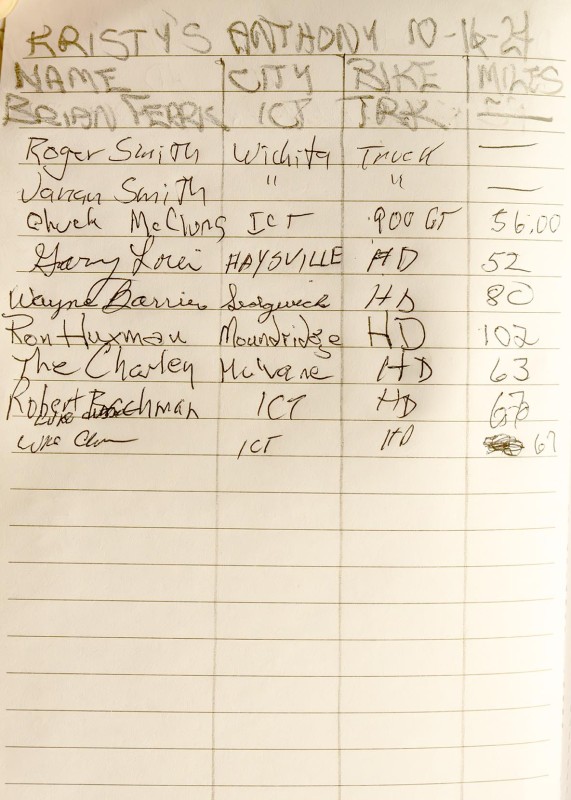 KRISTY'S ANTHONY 10-16-21
NAME CITY BIKE MILES
BRIAN FEARK ICT TRK —
Roger Smith Wichita Truck —
Smith " " —
Chuck McClung ICT 900 GT 56.00
Gary HAYSVILLE HD 52
Wayne Barrier Sedgwick HD 80
Ron Huxman Moundridge HD 102
The Charley Mulvane HD 63
Robert Bachman ICT HD 67
ICT HD 67